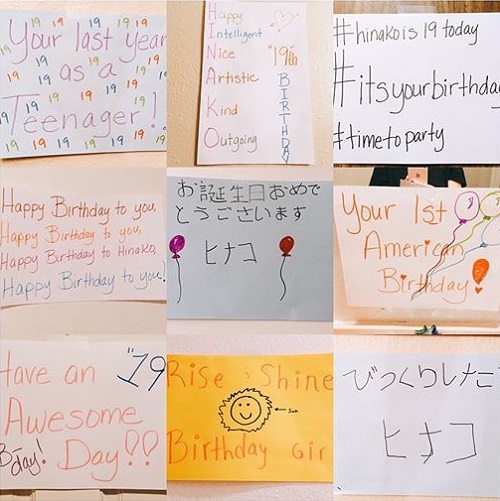 Your last year
19 19 19 19 19
as a
19 19 19 19
Teenager!
19 19 19 19
HINAKO
Happy
Intelligent
Nice
Artistic
Kind
Outgoing
"19th
BIRTHDAY
#hinakois 19 today
#itsyourbirthday
#timetoparty
Happy Birthday to you,
Happy Birthday to you,
Happy Birthday to Hinako,
Happy Birthday to you!
お誕生日おめで
とうございます
ヒナコ
Your 1st
American
Birthday!
Have an
"19
Awesome
Bday!
Day!!
Rise & Shine
Sun
Birthday Girl
びっくりした
ヒナコ